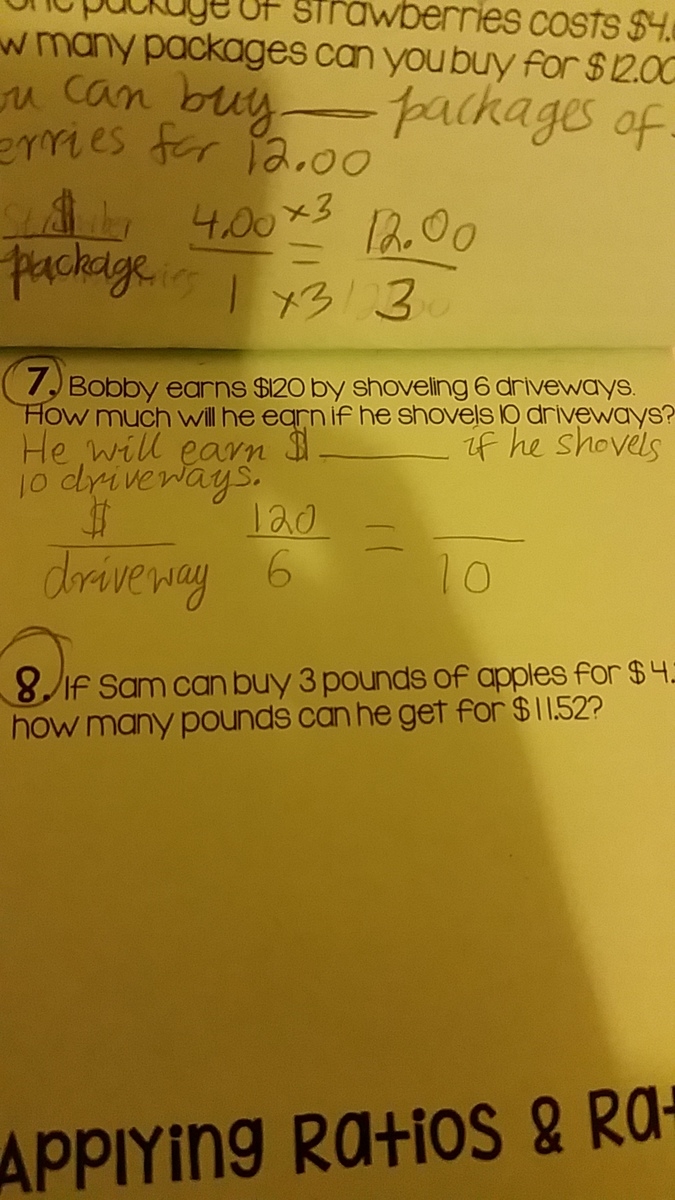 package of strawberries costs $4.
many packages can you buy for $12.00
can buy ___ packages of
for 12.00
$ 4.00 x3 = 12.00
package 1 x3 3
7. Bobby earns $120 by shoveling 6 driveways.
How much will he earn if he shovels 10 driveways?
He will earn $ ______ if he shovels
10 driveways.
$ 120 =
driveway 6 10
8. If Sam can buy 3 pounds of apples for $4.
how many pounds can he get for $11.52?
Applying Ratios &